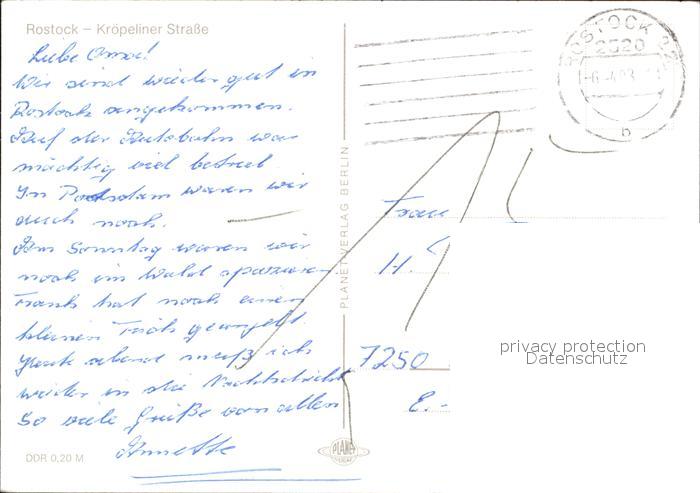 Rostock – Kröpeliner Straße
Liebe Oma!
Wir sind wieder gut in
Rostock angekommen.
Auf der Autobahn war
mächtig viel betrieb
In Potsdam waren wir
auch noch.
Am Sonntag waren wir
noch im Wald spazieren
Frank hat noch einen
kleinen Fisch geangelt.
Heute abend muß ich
wieder in die Nachtschicht
So viele Grüße von allen
Annette
DDR 0,20 M
PLANET-VERLAG BERLIN
PLANET
ROSTOCK 22
2520
b
Frau
H.
7250
E.-
privacy protection
Datenschutz